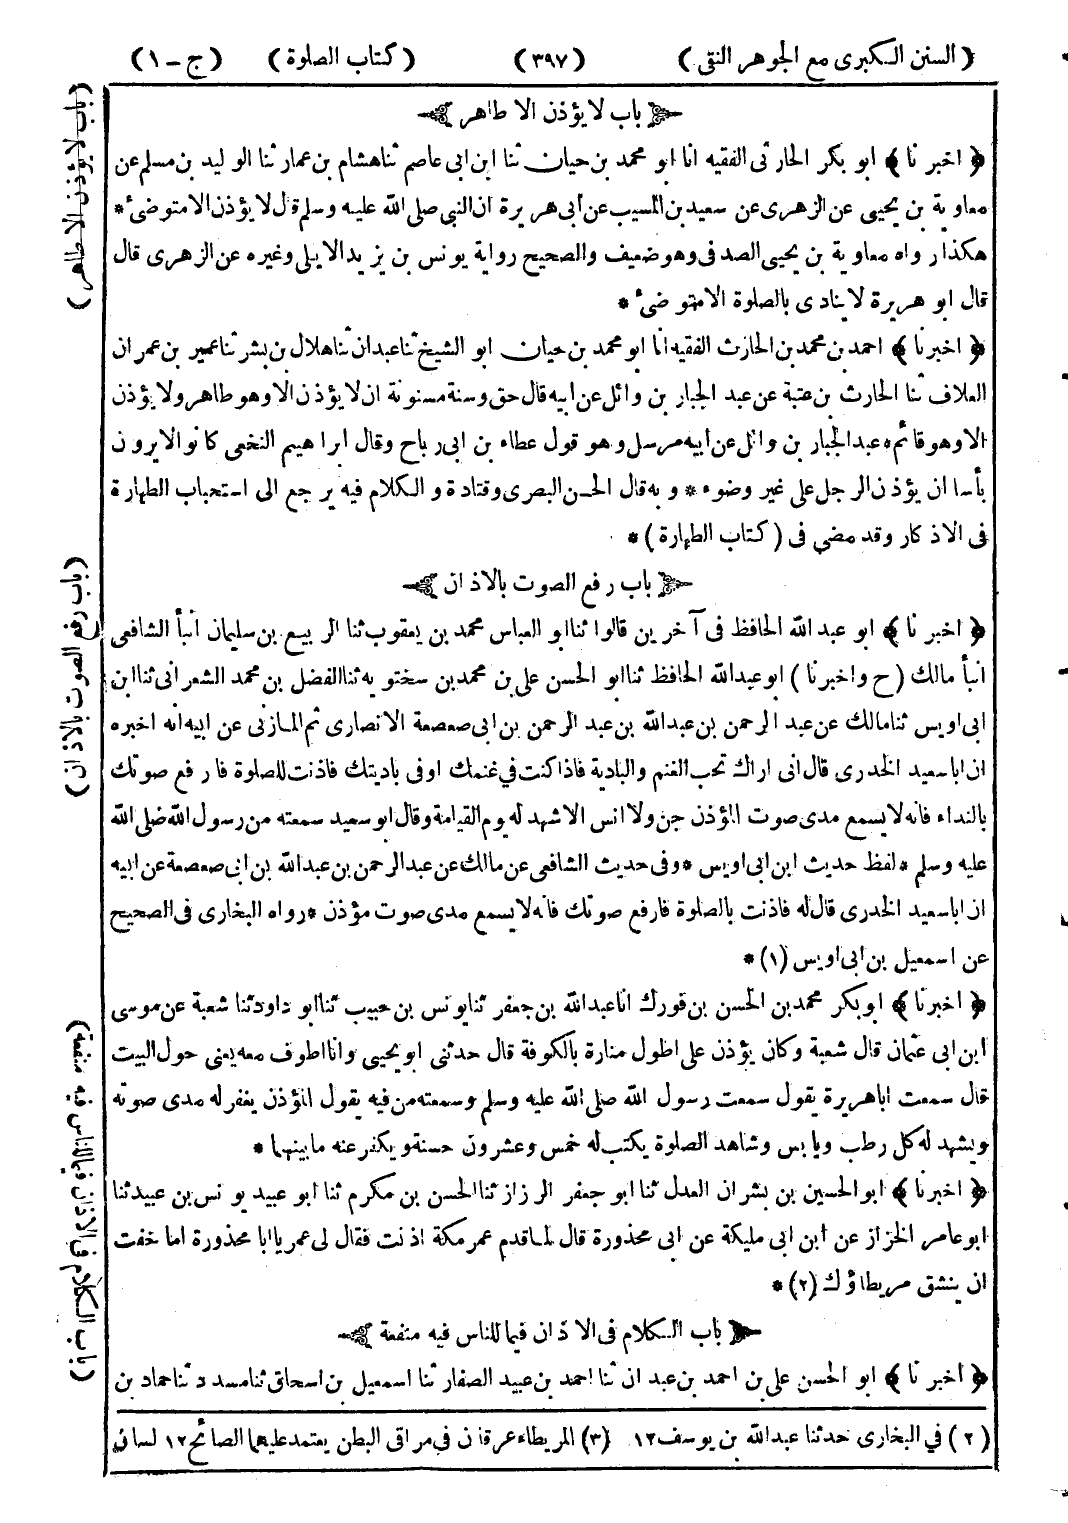 (السنن الكبرى مع الجوهر النقى) (٣٩٧) (كتاب الصلوة) (ج-١)
باب لا يؤذن الا طاهر
﴿ اخبرنا ﴾ ابو بكر الحارثى الفقيه انا ابو محمد بن حيان ثنا ابن ابى عاصم ثنا هشام بن عمار ثنا الوليد بن مسلم عن
معاوية بن يحيى عن الزهرى عن سعيد بن المسيب عن ابى هريرة ان النبي صلى الله عليه وسلم قال لا يؤذن الا متوضئ *
هكذا رواه معاوية بن يحيى الصدفى وهو ضعيف والصحيح رواية يونس بن يزيد الايلى وغيره عن الزهرى قال
قال ابو هريرة لا ينادى بالصلوة الا متوضئ *
﴿ اخبرنا ﴾ احمد بن محمد بن الحارث الفقيه انا ابو محمد بن حيان ابو الشيخ ثنا عبدان ثنا هلال بن بشر ثنا عمير بن عمران
العلاف ثنا الحارث بن عتبة عن عبد الجبار بن وائل عن ابيه قال حق وسنة مسنونة ان لا يؤذن الا وهو طاهر ولا يؤذن
الا وهو قائم * عبد الجبار بن وائل عن ابيه مرسل وهو قول عطاء بن ابى رباح وقال ابراهيم النخعى كانوا لا يرون
بأسا ان يؤذن الرجل على غير وضوء * وبه قال الحسن البصرى وقتادة والكلام فيه يرجع الى استحباب الطهارة
فى الاذكار وقد مضى فى (كتاب الطهارة) *
باب رفع الصوت بالاذان
﴿ اخبرنا ﴾ ابو عبد الله الحافظ فى آخرين قالوا ثنا ابو العباس محمد بن يعقوب ثنا الربيع بن سليمان انبأ الشافعى
انبأ مالك (ح واخبرنا) ابو عبد الله الحافظ ثنا ابو الحسن على بن محمد بن سختويه ثنا الفضل بن محمد الشعرانى ثنا ابن
ابى اويس ثنا مالك عن عبد الرحمن بن عبد الله بن عبد الرحمن بن ابى صعصعة الانصارى ثم المازنى عن ابيه انه اخبره
ان ابا سعيد الخدرى قال انى اراك تحب الغنم والبادية فاذا كنت في غنمك او فى باديتك فاذنت للصلوة فارفع صوتك
بالنداء فانه لا يسمع مدى صوت المؤذن جن ولا انس الا شهد له يوم القيامة وقال ابو سعيد سمعته من رسول الله صلى الله
عليه وسلم * لفظ حديث ابن ابى اويس * وفى حديث الشافعى عن مالك عن عبد الرحمن بن عبد الله بن ابى صعصعة عن ابيه
ان ابا سعيد الخدرى قال له فاذنت بالصلوة فارفع صوتك فانه لا يسمع مدى صوت مؤذن * رواه البخارى فى الصحيح
عن اسمعيل بن ابى اويس (١) *
﴿ اخبرنا ﴾ ابو بكر محمد بن الحسن بن فورك انا عبد الله بن جعفر ثنا يونس بن حبيب ثنا ابو داود ثنا شعبة عن موسى
ابن ابى عثمان قال شعبة وكان يؤذن على اطول منارة بالكوفة قال حدثنى ابو يحيى وانا اطوف معه يعنى حول البيت
قال سمعت ابا هريرة يقول سمعت رسول الله صلى الله عليه وسلم وسمعته من فيه يقول المؤذن يغفر له مدى صوته
ويشهد له كل رطب ويابس وشاهد الصلوة يكتب له خمس وعشرون حسنة ويكفر عنه ما بينهما *
﴿ اخبرنا ﴾ ابو الحسين بن بشران العدل ثنا ابو جعفر الرزاز ثنا الحسن بن مكرم ثنا ابو عبيد يونس بن عبيد ثنا
ابو عامر الخزاز عن ابن ابى مليكة عن ابى محذورة قال لما قدم عمر مكة اذنت فقال لى عمر يا ابا محذورة اما خفت
ان ينشق مريطاؤك (٢) *
باب الكلام فى الاذان فيما للناس فيه منفعة
﴿ اخبرنا ﴾ ابو الحسن على بن احمد بن عبدان ثنا احمد بن عبيد الصفار ثنا اسمعيل بن اسحاق ثنا مسدد ثنا حماد بن
(٢) في البخارى حدثنا عبد الله بن يوسف ١٢ (٣) المريطاء عرقان فى مراقى البطن يعتمد عليهما الصائح ١٢ لسان
(باب لا يؤذن الا طاهر)
(باب رفع الصوت بالاذان)
(باب الكلام فى الاذان فيما للناس فيه منفعة)